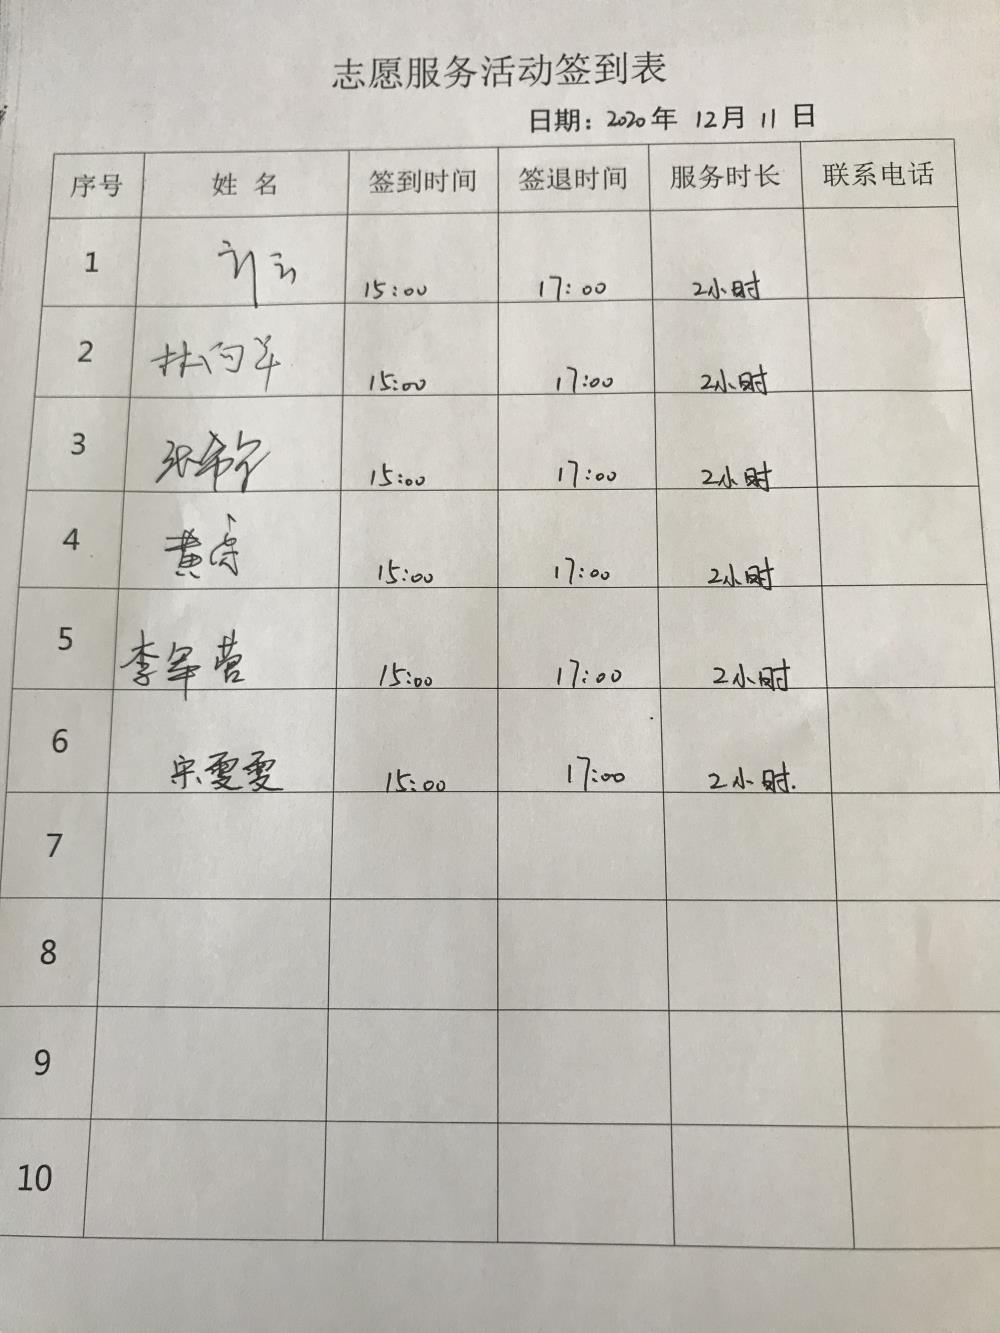 志愿服务活动签到表
日期：2020年 12月 11 日
序号 姓名 签到时间 签退时间 服务时长 联系电话
1 15:00 17:00 2小时
2 林向军 15:00 17:00 2小时
3 15:00 17:00 2小时
4 黄 15:00 17:00 2小时
5 李军营 15:00 17:00 2小时
6 宋雯雯 15:00 17:00 2小时.
7
8
9
10